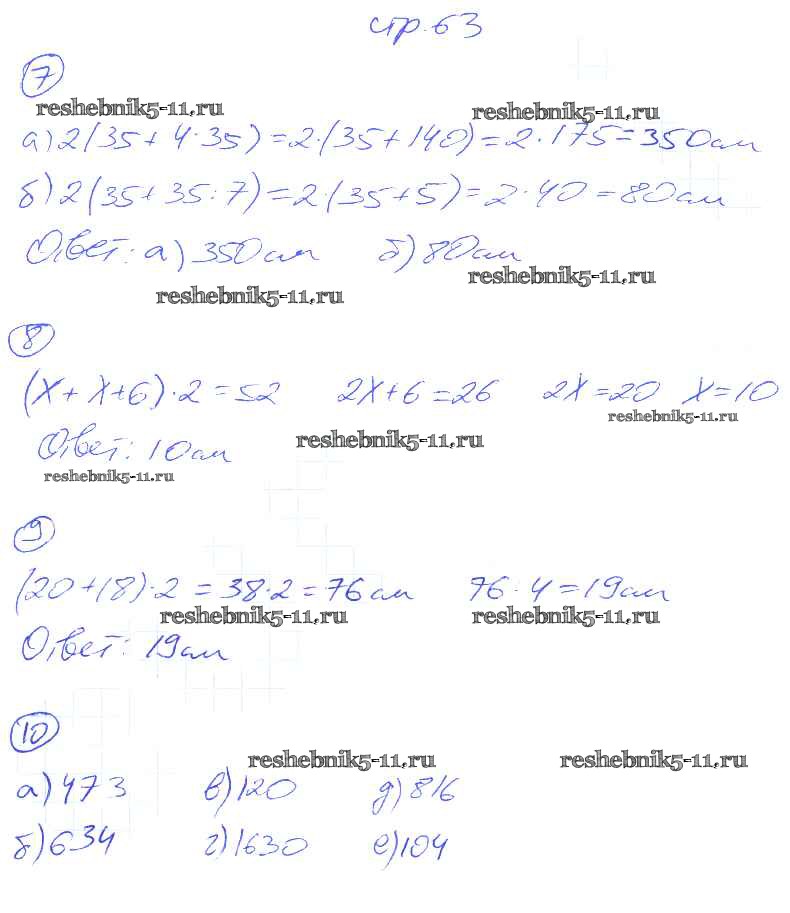 стр. 63
7
reshebnik5-11.ru reshebnik5-11.ru
а) 2(35 + 4·35) = 2·(35 + 140) = 2·175 = 350см
б) 2(35 + 35:7) = 2·(35+5) = 2·40 = 80см
Ответ: а) 350см б) 80см
reshebnik5-11.ru
reshebnik5-11.ru
8
(x + x + 6)·2 = 52 2x + 6 = 26 2x = 20 x = 10
reshebnik5-11.ru
Ответ: 10см reshebnik5-11.ru
reshebnik5-11.ru
9
(20 + 18)·2 = 38·2 = 76см 76:4 = 19см
reshebnik5-11.ru reshebnik5-11.ru
Ответ: 19см
10
reshebnik5-11.ru reshebnik5-11.ru
а) 473 в) 120 д) 816
б) 634 г) 1630 е) 104